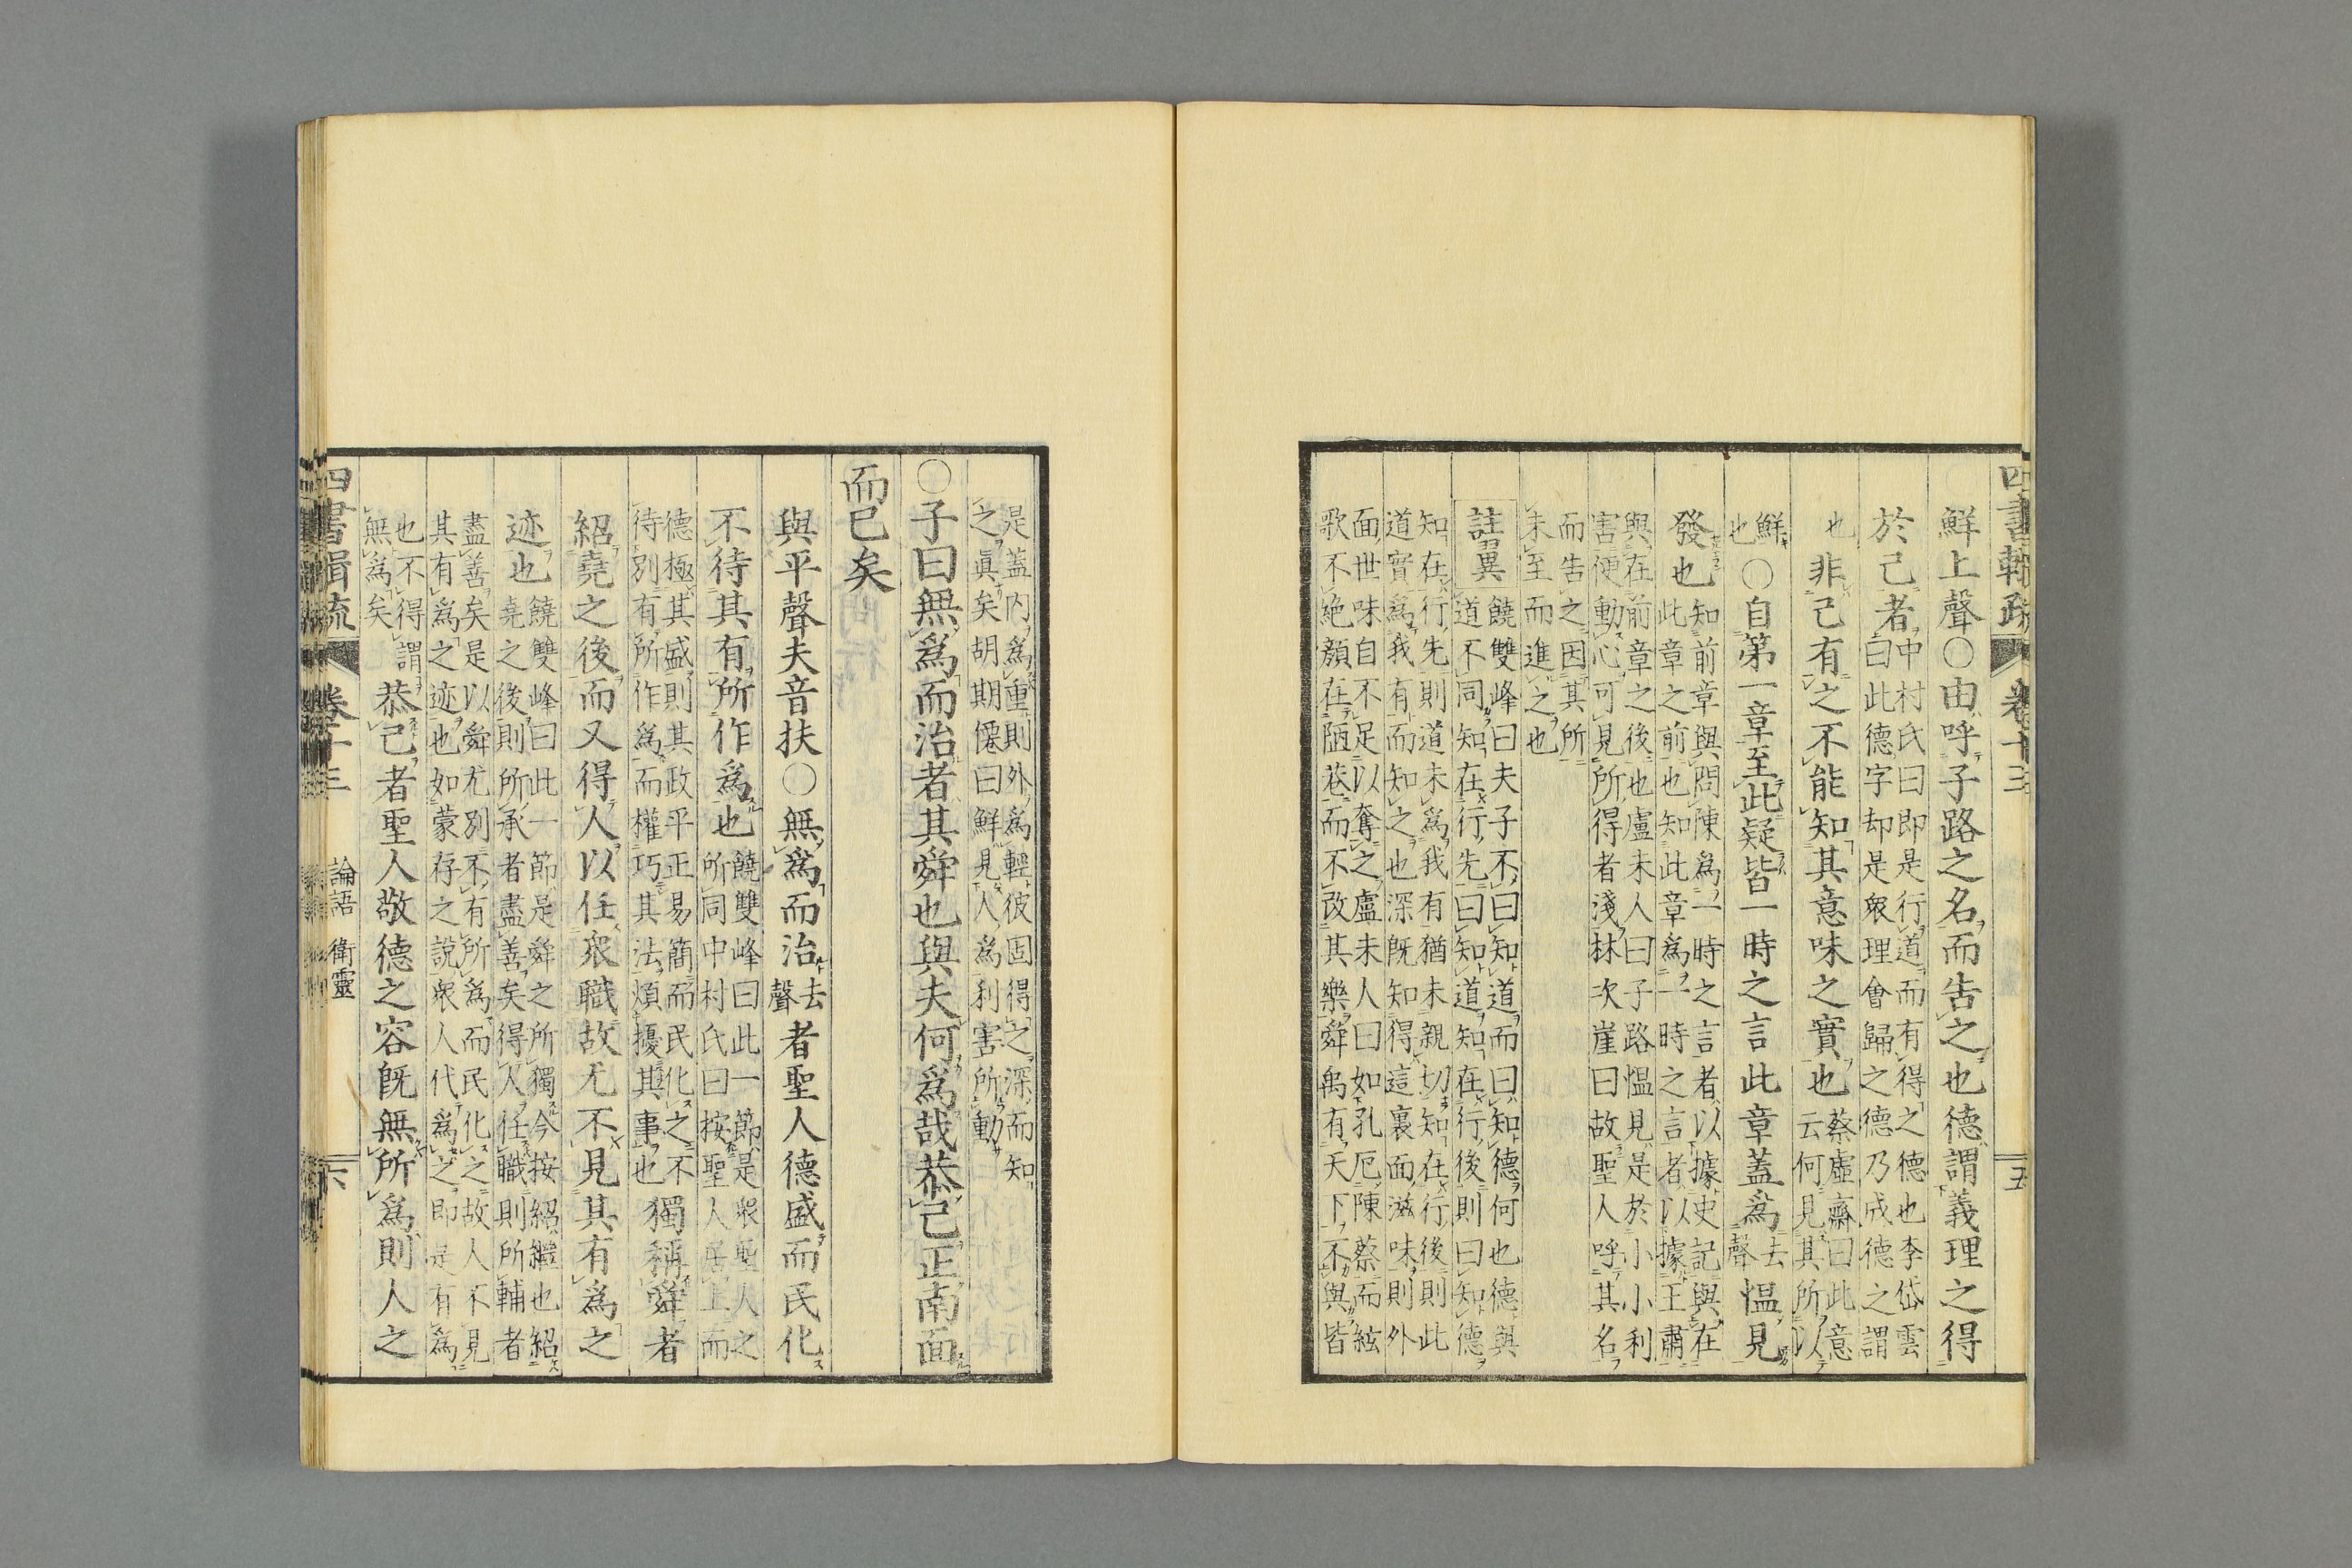 四書輯疏 卷十三 五
鮮上聲〇由呼子路之名而告之也德謂義理之得
於己者
中村氏曰即是行道而有得之德也李岱雲
曰此德字却是衆理會歸之德乃成德之謂
也
非己有之不能知其意味之實也
蔡虛齋曰此意
云何見其所以
鮮
也
〇自第一章至此疑皆一時之言此章蓋爲
去
聲
慍見
發也
知前章與問陳爲一時之言者以據史記與在
此章之前也知此章爲一時之言者以據王肅
與在前章之後也盧未人曰子路慍見是於小小利
害便動心可見所得者淺林次崖曰故聖人呼其名
而告之因其所
未至而進之也
註翼
饒雙峰曰夫子不曰知道而曰知德何也德與
道不同知在行先曰知道知在行後則曰知德
知在行先則道未爲我有猶未親切知在行後則此
道實爲我有而知之也深既知得這裏面滋味則外
面世味自不足以奪之盧未人曰如孔厄陳蔡而絃
歌不絶顏在陋巷而不改其樂舜禹有天下不與皆
是蓋內爲重則外爲輕彼固得之深而知
之眞矣胡期僊曰鮮見人爲利害所動
〇子曰無爲而治者其舜也與夫何爲哉恭己正南面
而已矣
與平聲夫音扶〇無爲而治
去
聲
者聖人德盛而民化
不待其有所作爲也
饒雙峰曰此一節是衆聖人之
所同中村氏曰按聖人居上而
德極其盛則其政平正易簡而民化之不
待別有所作爲而權巧其法煩擾其事也
獨稱舜者
紹堯之後而又得人以任衆職故尤不見其有爲之
迹也
饒雙峰曰此一節是舜之所獨今按紹繼也紹
堯之後則所承者盡善矣得人任職則所輔者
盡善矣是以舜尤別不有所爲而民化之故人不見
其有爲之迹也如蒙存之說衆人代爲之即是有爲
也不得謂
無爲矣
恭己者聖人敬德之容既無所爲則人之
四書輯疏 卷十三 論語 衛靈 六